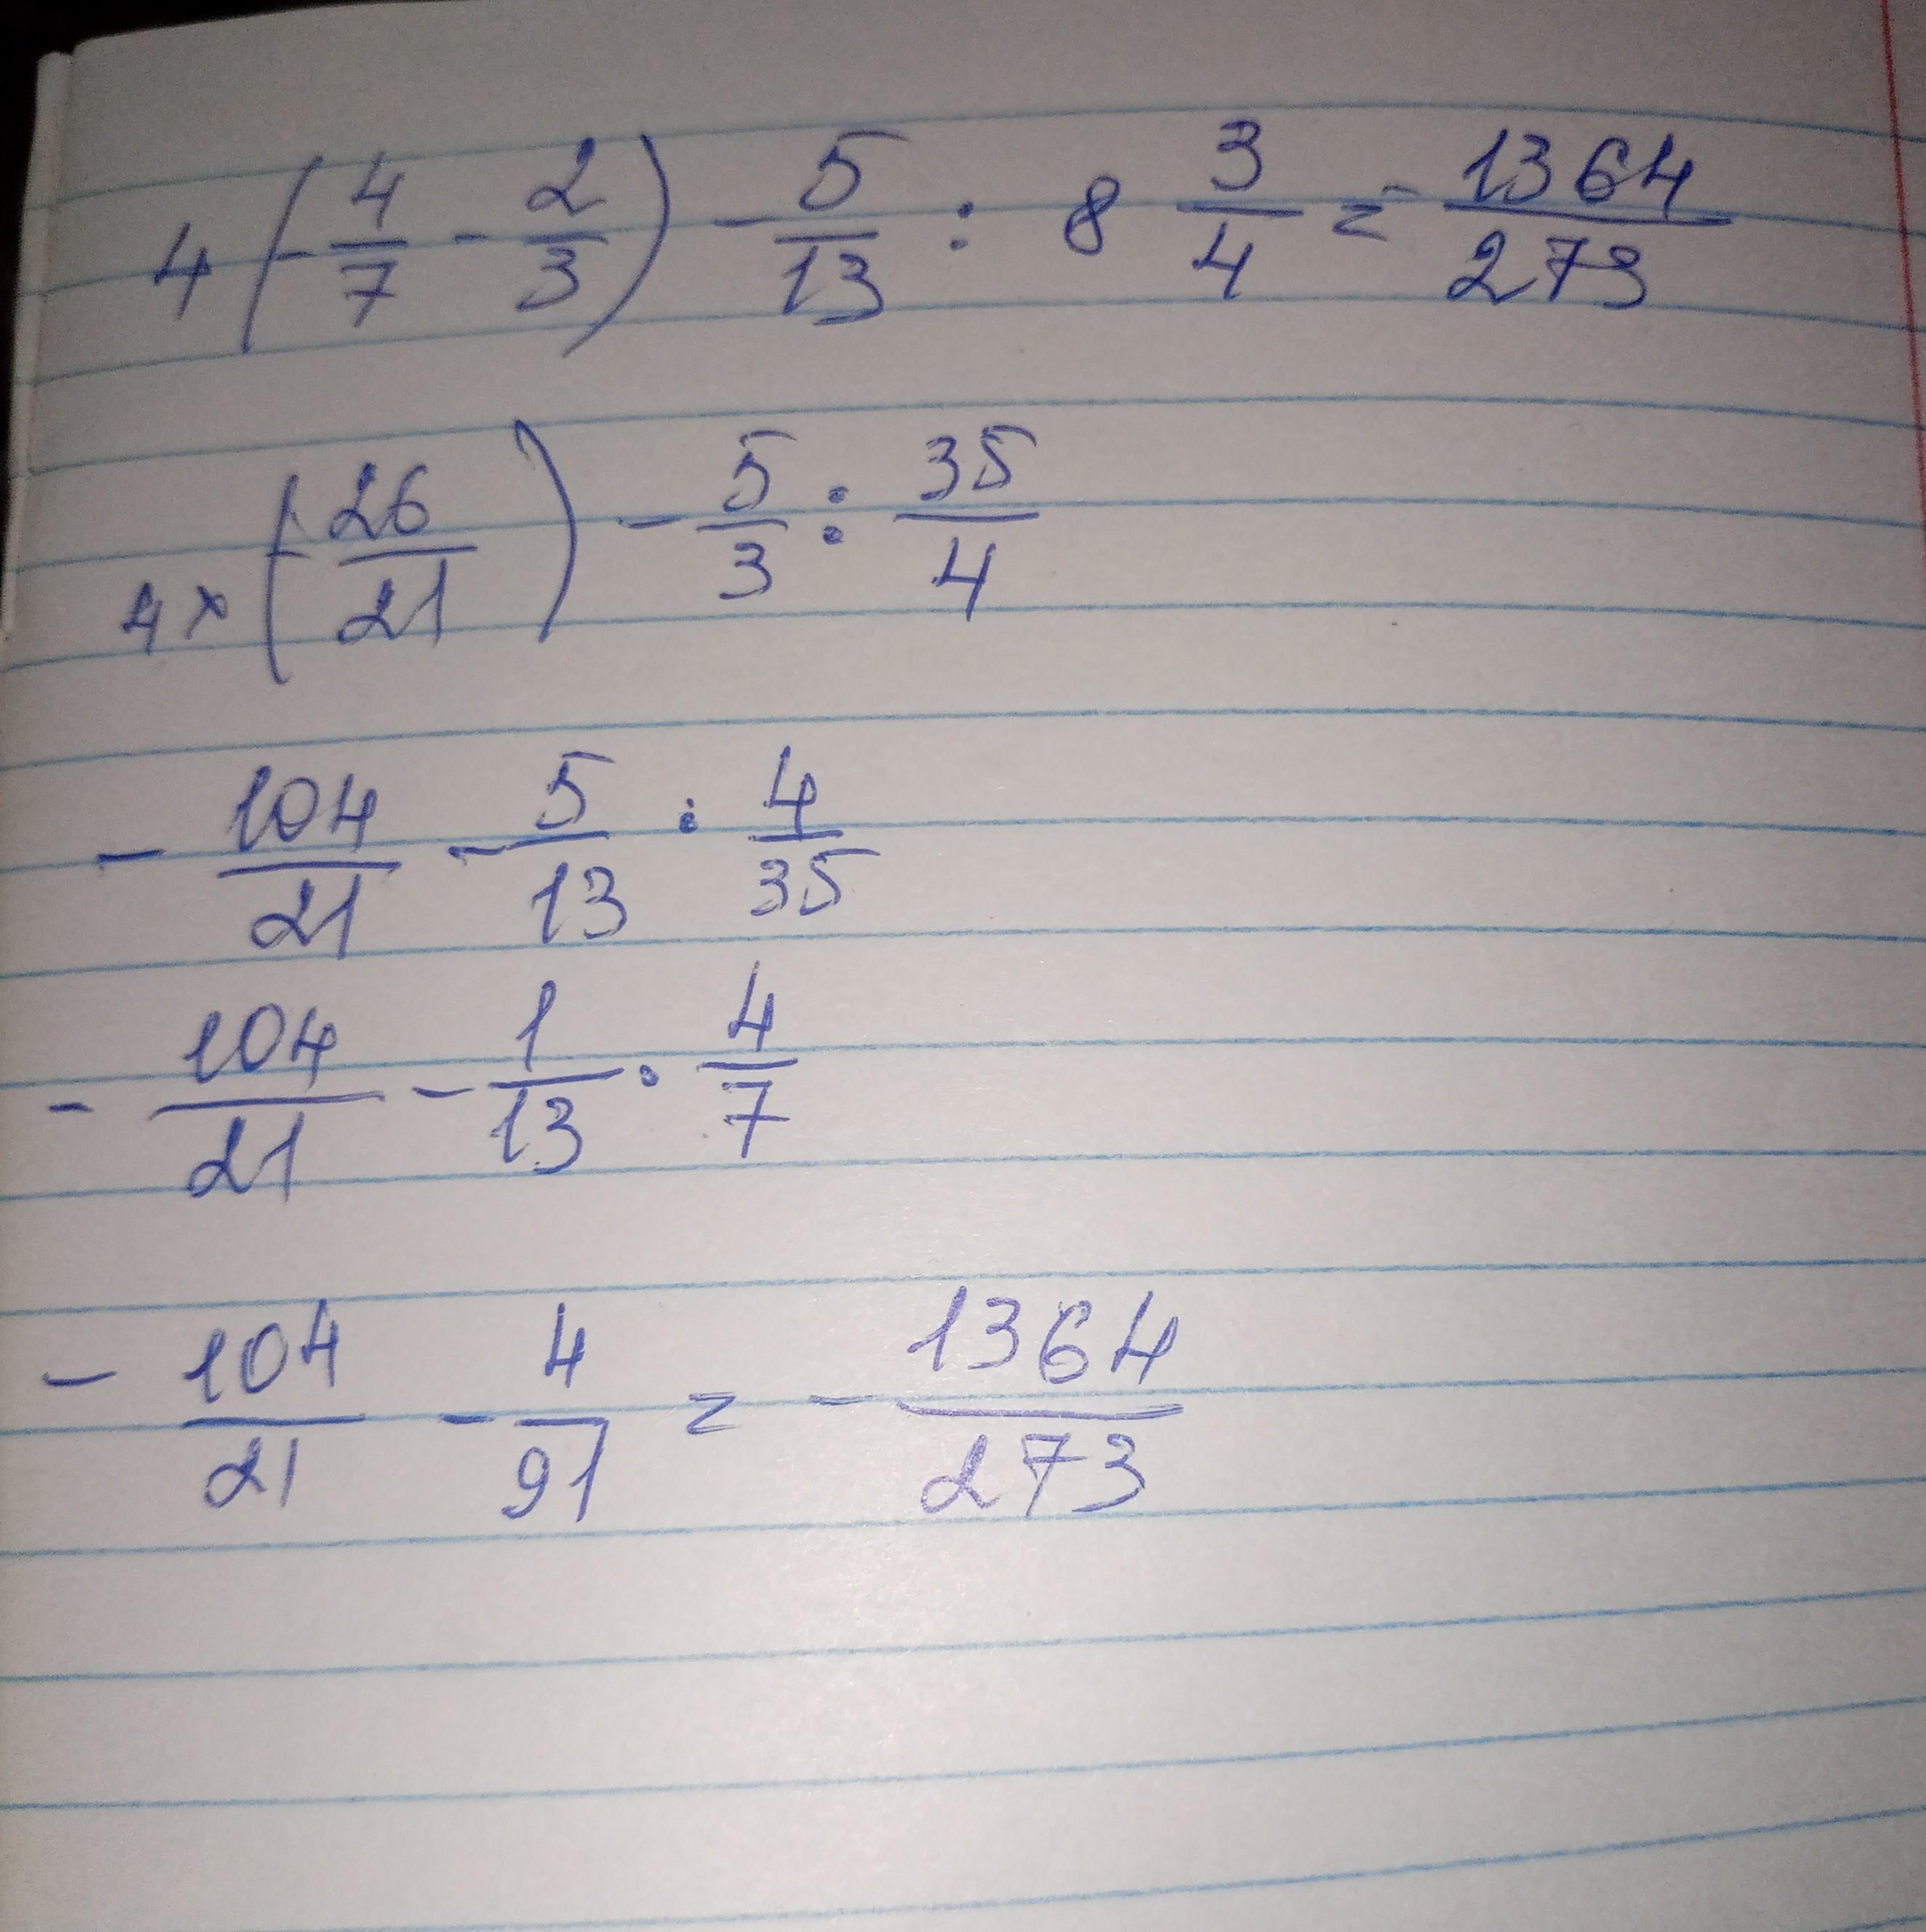 4(-4/7 - 2/3) - 5/13 : 8 3/4 = -1364/273
4×(-26/21) - 5/3 : 35/4
- 104/21 - 5/13 : 4/35
- 104/21 - 1/13 · 4/7
- 104/21 - 4/91 = - 1364/273